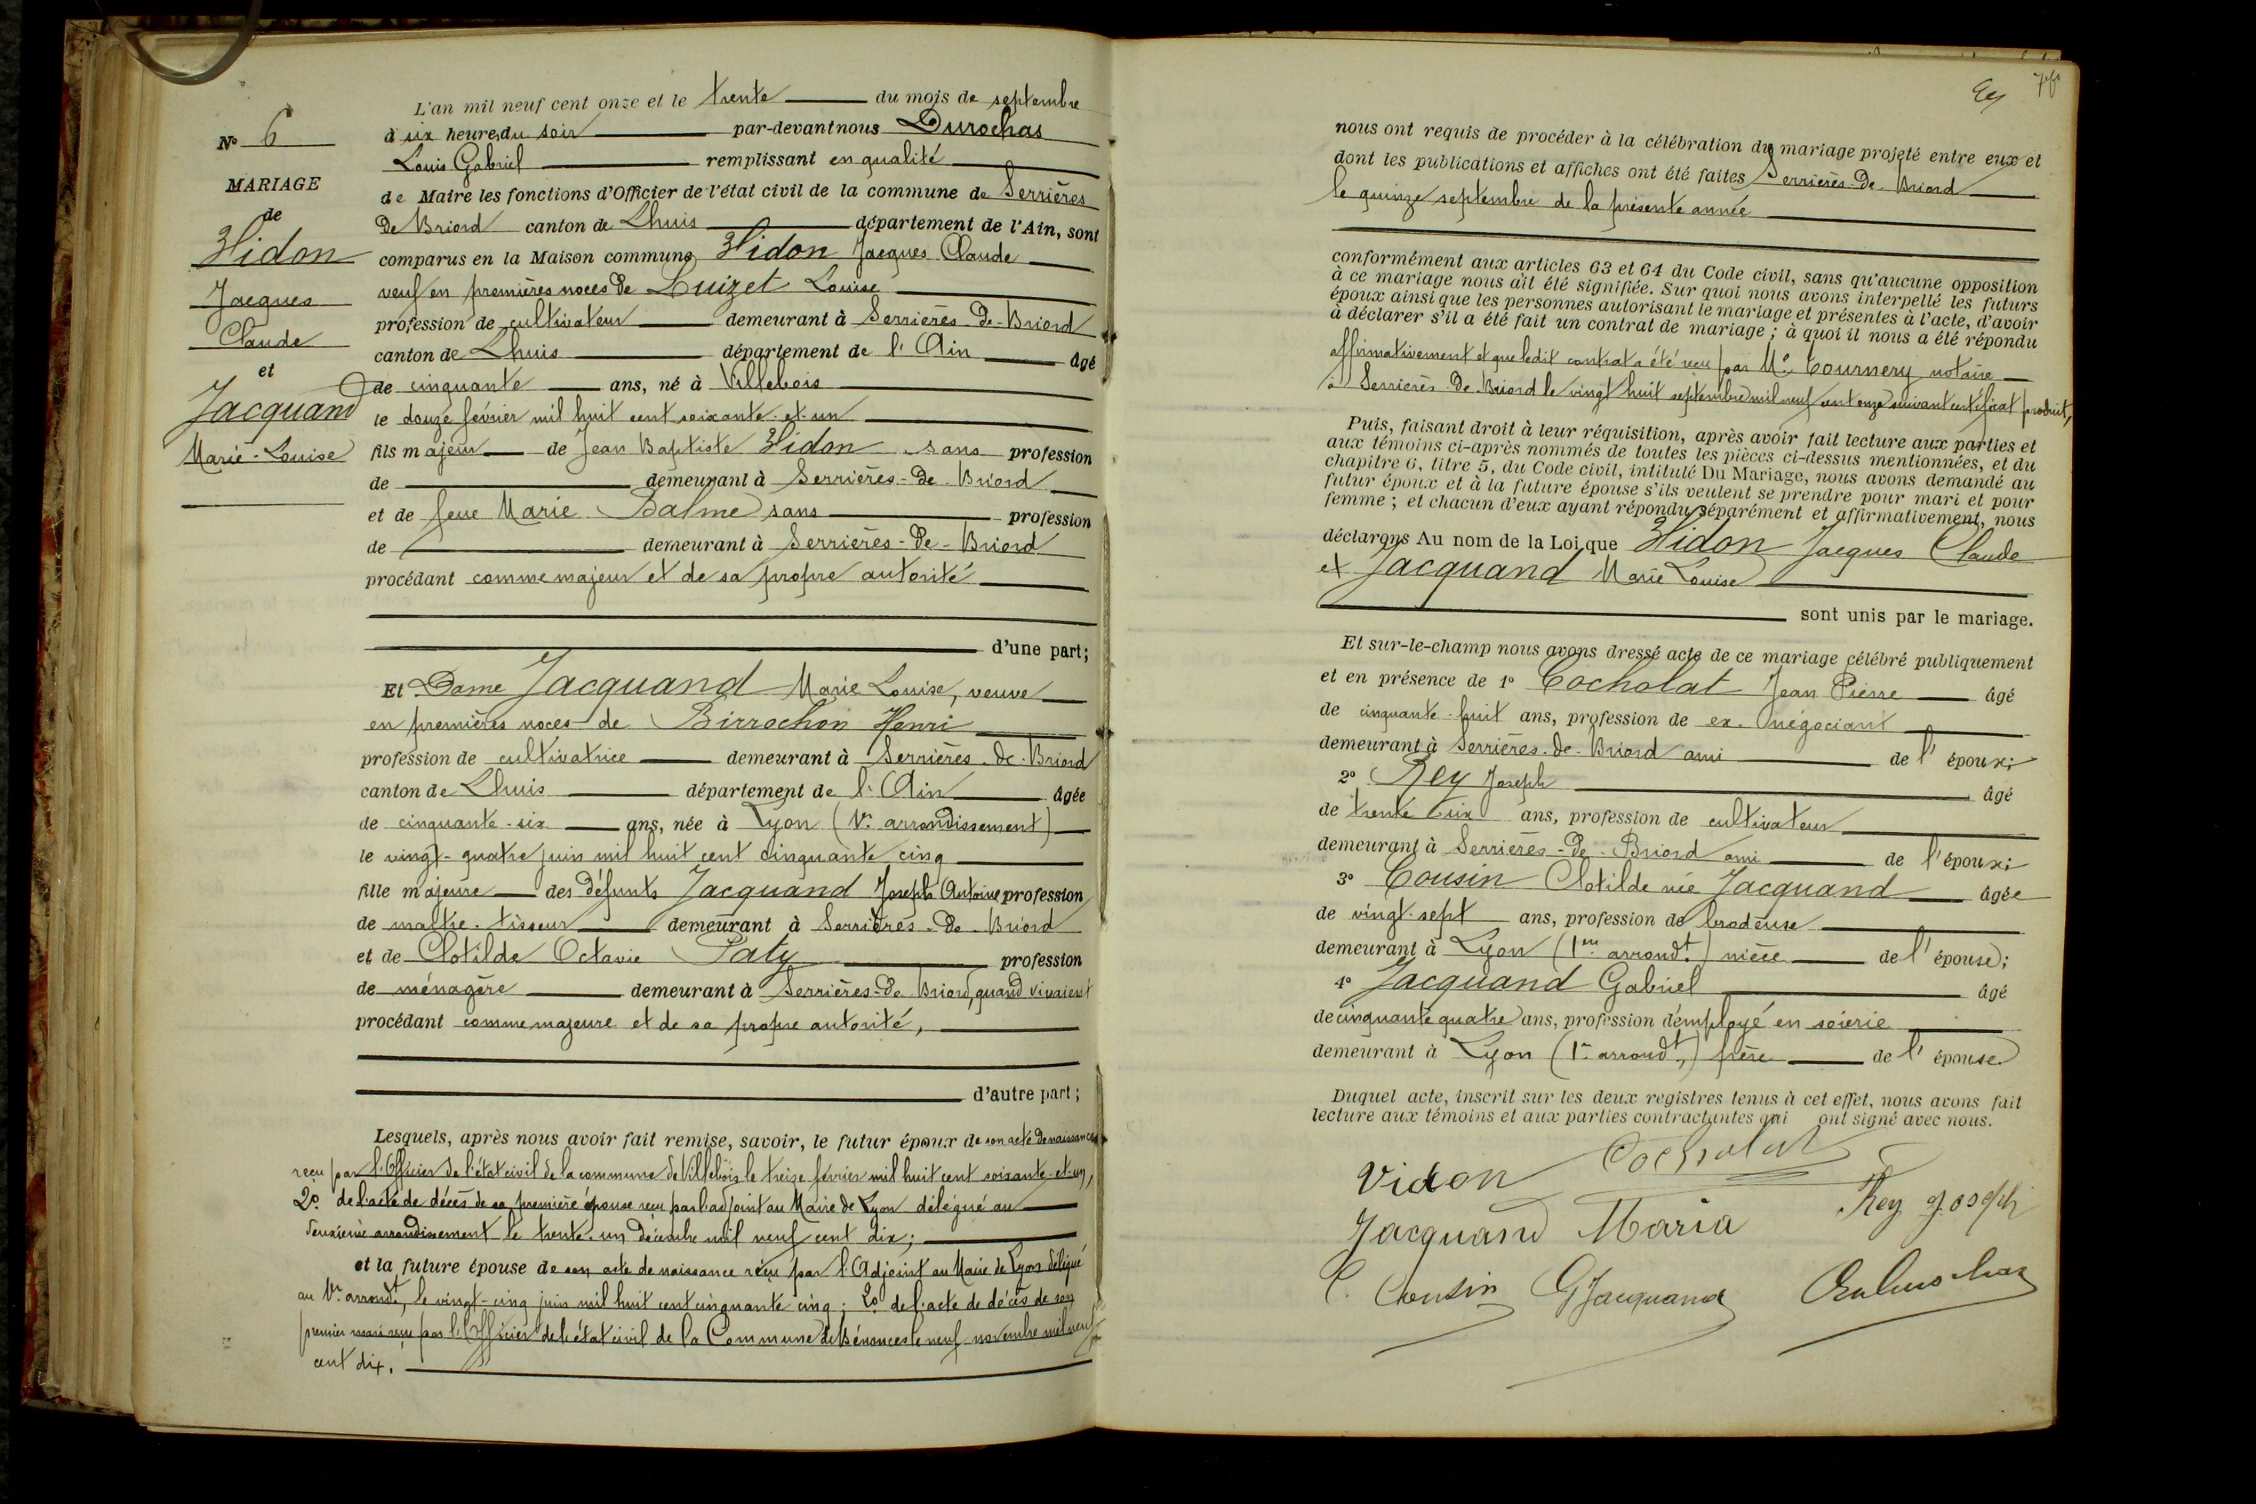 N° 6
MARIAGE
de
Vidon
Jacques
Claude
et
Jacquand
Marie-Louise
L'an mil neuf cent onze et le trente du mois de septembre
à six heures du soir par-devant nous Durochas
Louis Gabriel remplissant en qualité
de Maire les fonctions d'Officier de l'état civil de la commune de Serrières
de Briord canton de Lhuis département de l'Ain, sont
comparus en la Maison commune Vidon Jacques Claude
veuf en premières noces de Luizet Louise
profession de cultivateur demeurant à Serrières-de-Briord
canton de Lhuis département de l'Ain âgé
de cinquante ans, né à Villebois
le douze février mil huit cent soixante-et-un
fils majeur de Jean Baptiste Vidon sans profession
de demeurant à Serrières-de-Briord
et de feue Marie Balme sans profession
de demeurant à Serrières-de-Briord
procédant comme majeur et de sa propre autorité
d'une part;
Et Dame Jacquand Marie Louise, veuve
en premières noces de Birrochon Henri
profession de cultivatrice demeurant à Serrières-de-Briord
canton de Lhuis département de l'Ain âgée
de cinquante-six ans, née à Lyon (1er arrondissement)
le vingt-quatre juin mil huit cent cinquante cinq
fille majeure des défunts Jacquand Joseph Antoine profession
de maître-tisseur demeurant à Serrières-de-Briord
et de Clotilde Octavie Paty profession
de ménagère demeurant à Serrières-de-Briord, quand vivaient
procédant comme majeure et de sa propre autorité,
d'autre part;
Lesquels, après nous avoir fait remise, savoir, le futur époux de son acte de naissance
reçu par l'Officier de l'état civil de la commune de Villebois le treize février mil huit cent soixante-et-un,
2° de l'acte de décès de sa première épouse reçu par l'adjoint au Maire de Lyon délégué au
deuxième arrondissement le trente-un décembre mil neuf cent dix;
et la future épouse de son acte de naissance reçu par l'Adjoint au Maire de Lyon délégué
au 1er arrondt, le vingt-cinq juin mil huit cent cinquante cinq; 2° de l'acte de décès de son
premier mari reçu par l'Officier de l'état civil de la Commune de Bénonces le neuf novembre mil neuf
cent dix.
nous ont requis de procéder à la célébration du mariage projeté entre eux et
dont les publications et affiches ont été faites Serrières-de-Briord
le quinze septembre de la présente année
conformément aux articles 63 et 64 du Code civil, sans qu'aucune opposition
à ce mariage nous ait été signifiée. Sur quoi nous avons interpellé les futurs
époux ainsi que les personnes autorisant le mariage et présentes à l'acte, d'avoir
à déclarer s'il a été fait un contrat de mariage; à quoi il nous a été répondu
affirmativement et que ledit contrat a été reçu par Me Tournery notaire
à Serrières-de-Briord le vingt huit septembre mil neuf cent onze suivant certificat produit,
Puis, faisant droit à leur réquisition, après avoir fait lecture aux parties et
aux témoins ci-après nommés de toutes les pièces ci-dessus mentionnées, et du
chapitre 6, titre 5, du Code civil, intitulé Du Mariage, nous avons demandé au
futur époux et à la future épouse s'ils veulent se prendre pour mari et pour
femme; et chacun d'eux ayant répondu séparément et affirmativement, nous
déclarons Au nom de la Loi que Vidon Jacques Claude
et Jacquand Marie Louise
sont unis par le mariage.
Et sur-le-champ nous avons dressé acte de ce mariage célébré publiquement
et en présence de 1° Cocholat Jean Pierre âgé
de cinquante-huit ans, profession de ex-négociant
demeurant à Serrières-de-Briord ami de l'époux;
2° Rey Joseph âgé
de trente six ans, profession de cultivateur
demeurant à Serrières-de-Briord ami de l'époux;
3° Cousin Clotilde née Jacquand âgée
de vingt-sept ans, profession de brodeuse
demeurant à Lyon (1er arrondt) nièce de l'épouse;
4° Jacquand Gabriel âgé
de cinquante quatre ans, profession d'employé en soierie
demeurant à Lyon (1er arrondt,) frère de l'épouse
Duquel acte, inscrit sur les deux registres tenus à cet effet, nous avons fait
lecture aux témoins et aux parties contractantes qui ont signé avec nous.
Vidon Cocholat
Jacquand Maria Rey Joseph
C. Cousin GJacquand